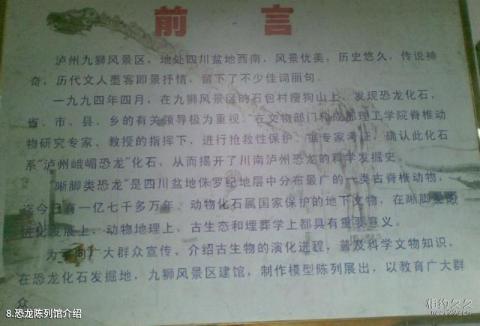 前言
泸州九狮风景区，地处四川盆地西南，风景优美，历史悠久，传说神
奇，历代文人墨客即景抒情，留下了不少佳词丽句。
一九九四年四月，在九狮风景区的石包村瘦狗山上，发现恐龙化石，
省、市、县、乡的有关领导极为重视。在文物部门和成都理工学院脊椎动
物研究专家、教授的指挥下，进行抢救性保护。专家考证，确认此化石
系"泸州峨嵋恐龙"化石，从而揭开了川南泸州恐龙的科学发掘史。
"晰脚类恐龙"是四川盆地侏罗纪地层中分布最广的一类古脊椎动物，
迄今已有一亿七千多万年。动物化石属国家保护的地下文物，在晰脚类恐龙
进化发展上、动物地理上，古生态和埋葬学上都具有重要意义。
为了向广大群众宣传，介绍古生物的演化进程，普及科学文物知识，
在恐龙化石发掘地，九狮风景区建馆，制作模型陈列展出，以教育广大群
众。
8.恐龙陈列馆介绍